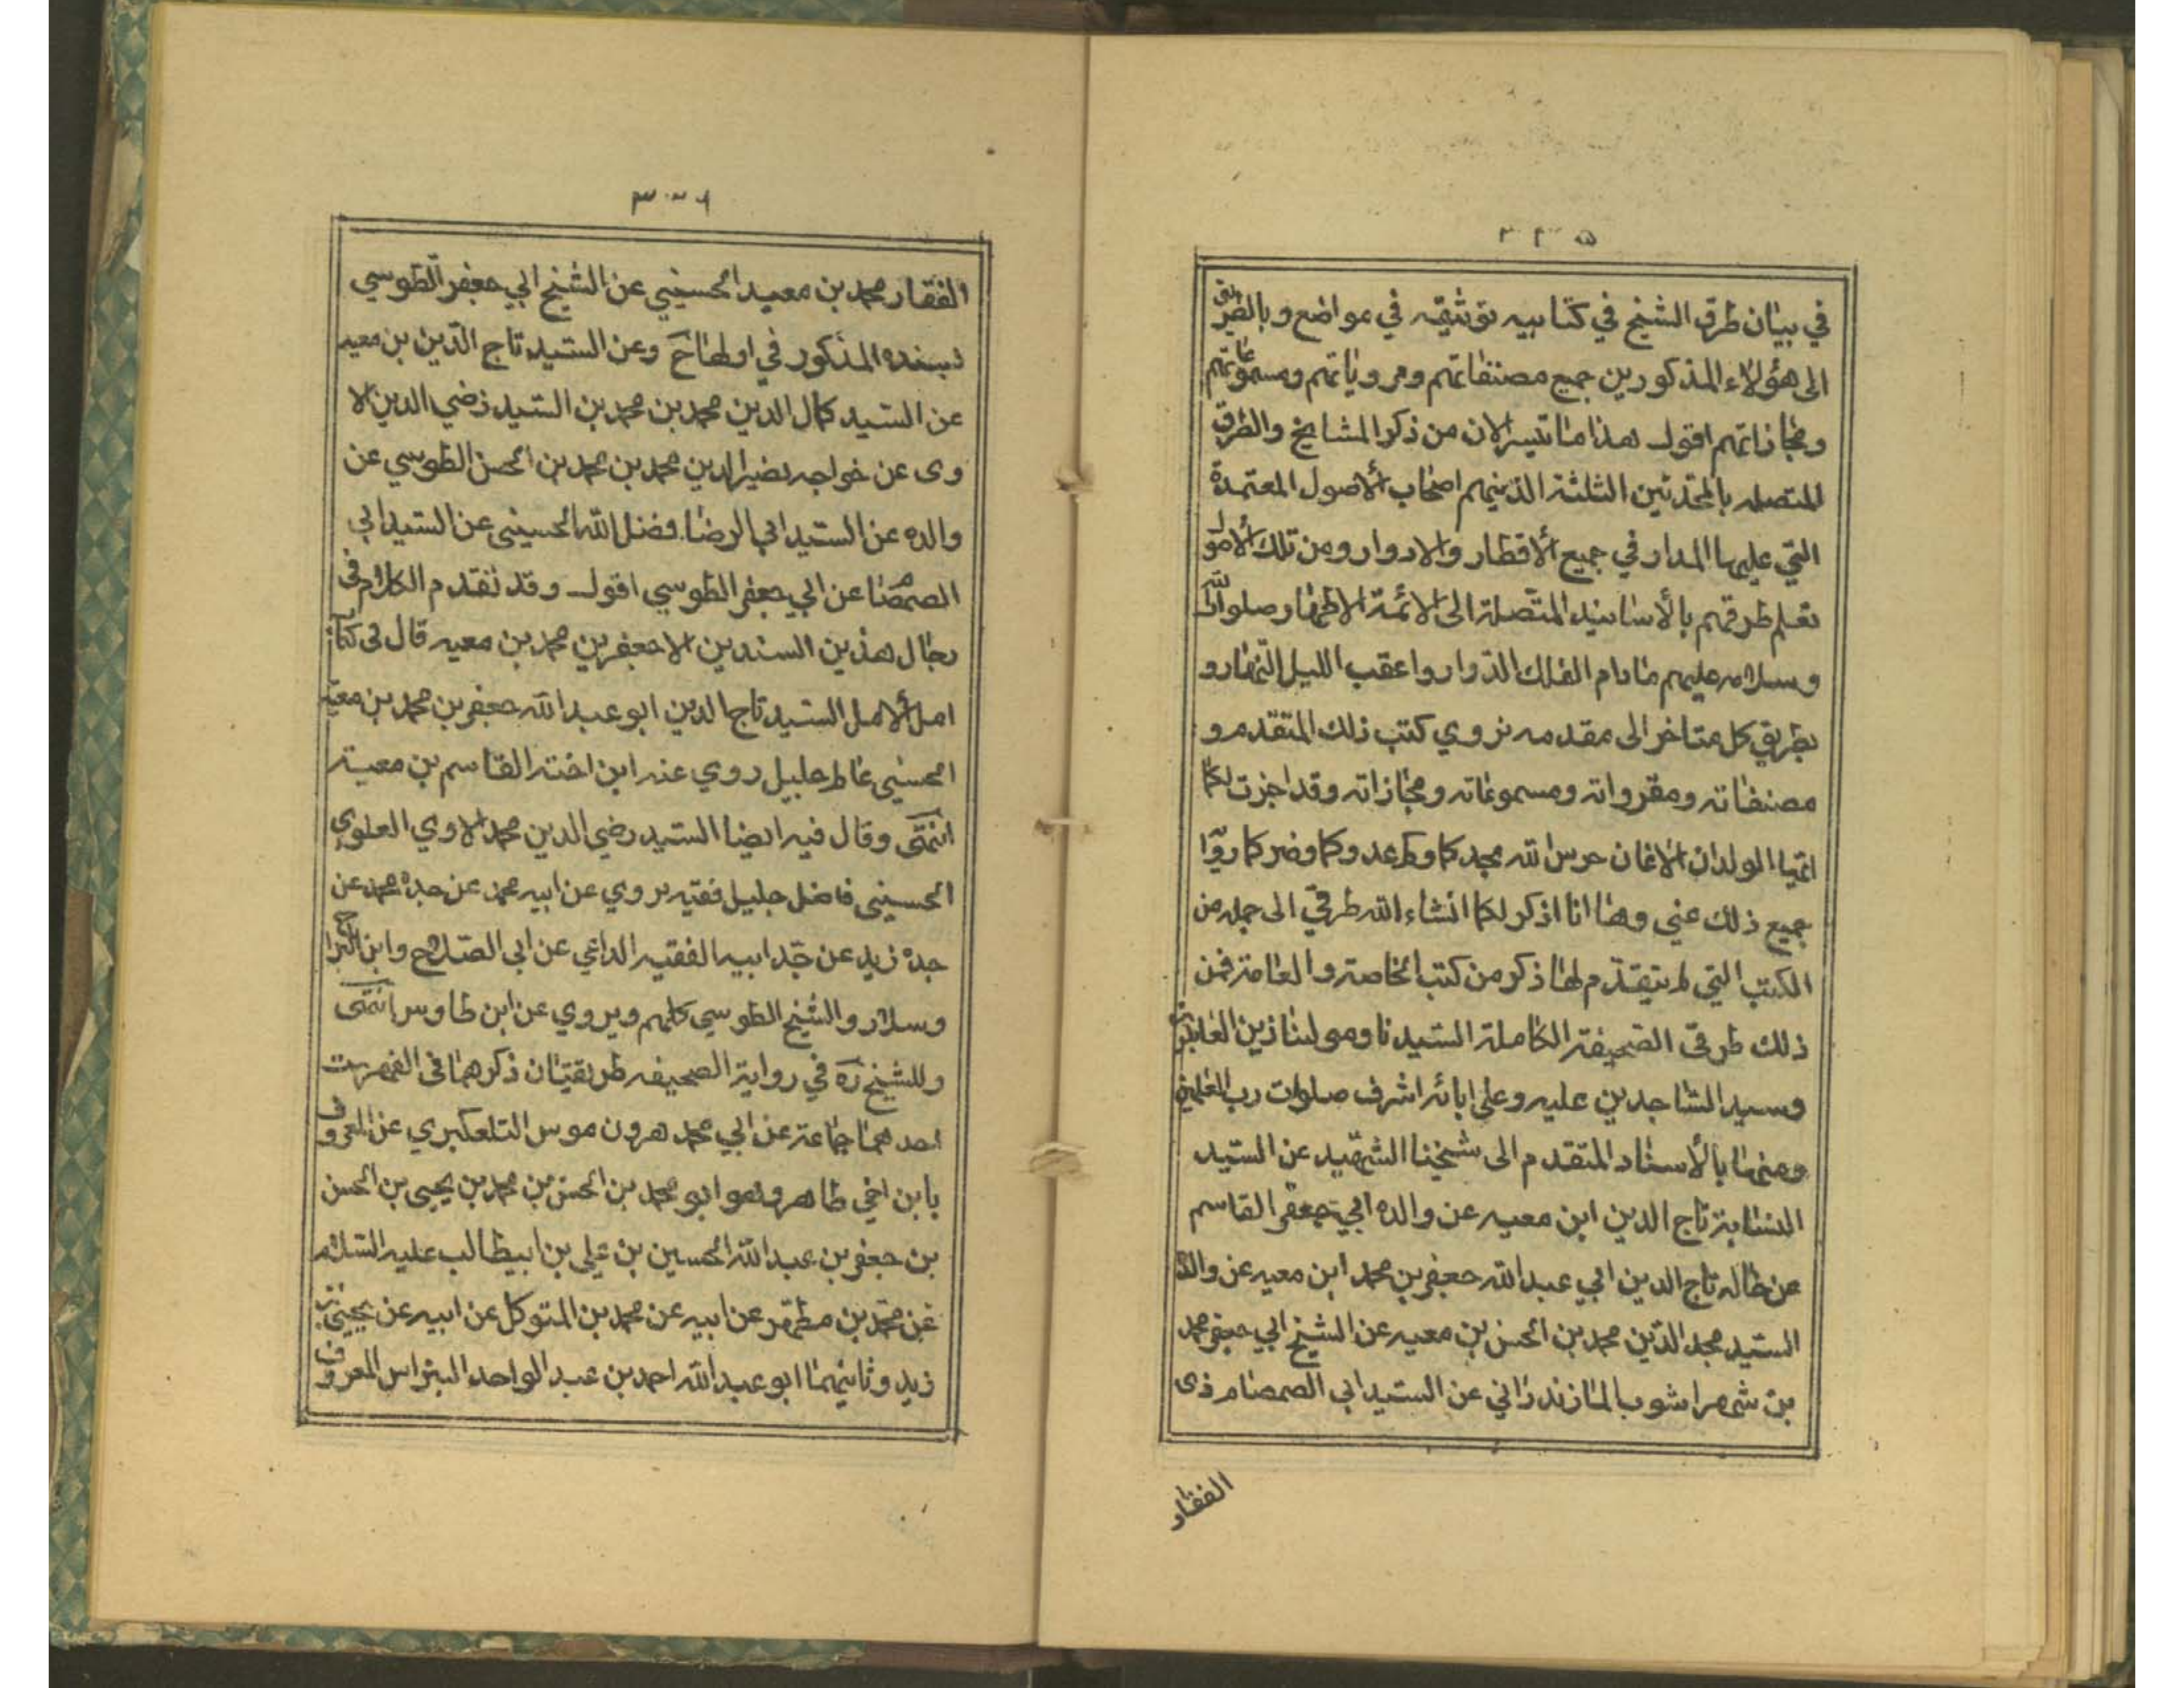 في بيان طرق الشيخ في كتابيه توثيقه في مواضع وبالطريق
الى هؤلاء المذكورين جميع مصنفاتهم ومروياتهم ومسموعاتهم
ومجازاتهم اقول هذا ما تيسر الان من ذكر المشايخ والطرق
المتصله بالمحدثين الثلثة الذينهم اصحاب الأصول المعتمدة
التي عليها المدار في جميع الأقطار والادوار ومن تلك الأصول
تعلم طرقهم بالأسانيد المتصلة الى الائمة الاطهار صلوات الله
وسلامه عليهم مادام الفلك الدوار واعقب الليل النهار و
بطريق كل متاخر الى مقدمه نروي كتب ذلك المتقدم و
مصنفاته ومقرواته ومسموعاته ومجازاته وقد اجزت لكما
ايها الولدان الاغان حرس الله مجدكما وكرعد وكما وضركما روا
جميع ذلك عني وها انا اذكر لكما انشاء الله طرقي الى جمله من
الكتب التي لم يتقدم لها ذكر من كتب الخاصة والعامة فمن
ذلك طرقي الصحيفة الكاملة السيدنا ومولينا زين العابدين
وسيد الساجدين عليه وعلى ابائه اشرف صلوات رب العلمين
ومنها بالأسناد المتقدم الى شيخنا الشهيد عن السيد
النسابة تاج الدين ابن معيه عن والده ابي جعفر القاسم
عن خاله تاج الدين ابي عبد الله جعفر بن محمد ابن معيه عن والده
السيد مجد الدين محمد بن الحسن بن معيه عن الشيخ ابي جعفر محمد
بن شهراشوب المازندراني عن السيد ابي الصمصام ذى
الفقار
الفقار محمد بن معبد الحسيني عن الشيخ ابي جعفر الطوسي
بسنده المذكور في اولها ح وعن السيد تاج الدين بن معيه
عن السيد كمال الدين محمد بن محمد بن السيد رضي الدين الا
وى عن خواجه نصير الدين محمد بن محمد بن الحسن الطوسي عن
والده عن السيد ابي الرضا فضل الله الحسيني عن السيد ابي
الصمصام عن ابي جعفر الطوسي اقول وقد تقدم الكلام في
رجال هذين السندين الا جعفر بن محمد بن معيه قال فى كتاب
امل الأمل السيد تاج الدين ابو عبد الله جعفر بن محمد بن معيه
الحسيني عالم جليل روي عنه ابن اخته القاسم بن معية
انتهى وقال فيه ايضا السيد رضي الدين محمد الاوي العلوي
الحسيني فاضل جليل فقيه يروي عن ابيه محمد عن جده محمد عن
جده زيد عن جد ابيه الفقيه الداعي عن ابي الصلاح وابن البراج
وسلار والشيخ الطوسي كلهم ويروي عن ابن طاوس انتهى
وللشيخ ره في رواية الصحيفه طريقتان ذكرهما فى الفهرست
احدهما جماعة عن ابي محمد هرون موسى التلعكبري عن المعروف
بابن اخي طاهر وهو ابو محمد بن الحسن بن محمد بن يحيى بن الحسن
بن جعفر بن عبد الله الحسين بن علي بن ابيطالب عليه السلام
عن محمد بن مطهر عن ابيه عن محمد بن المتوكل عن ابيه عن يحيى بن
زيد وثانيهما ابو عبد الله احمد بن عبد الواحد البزاس المعروف